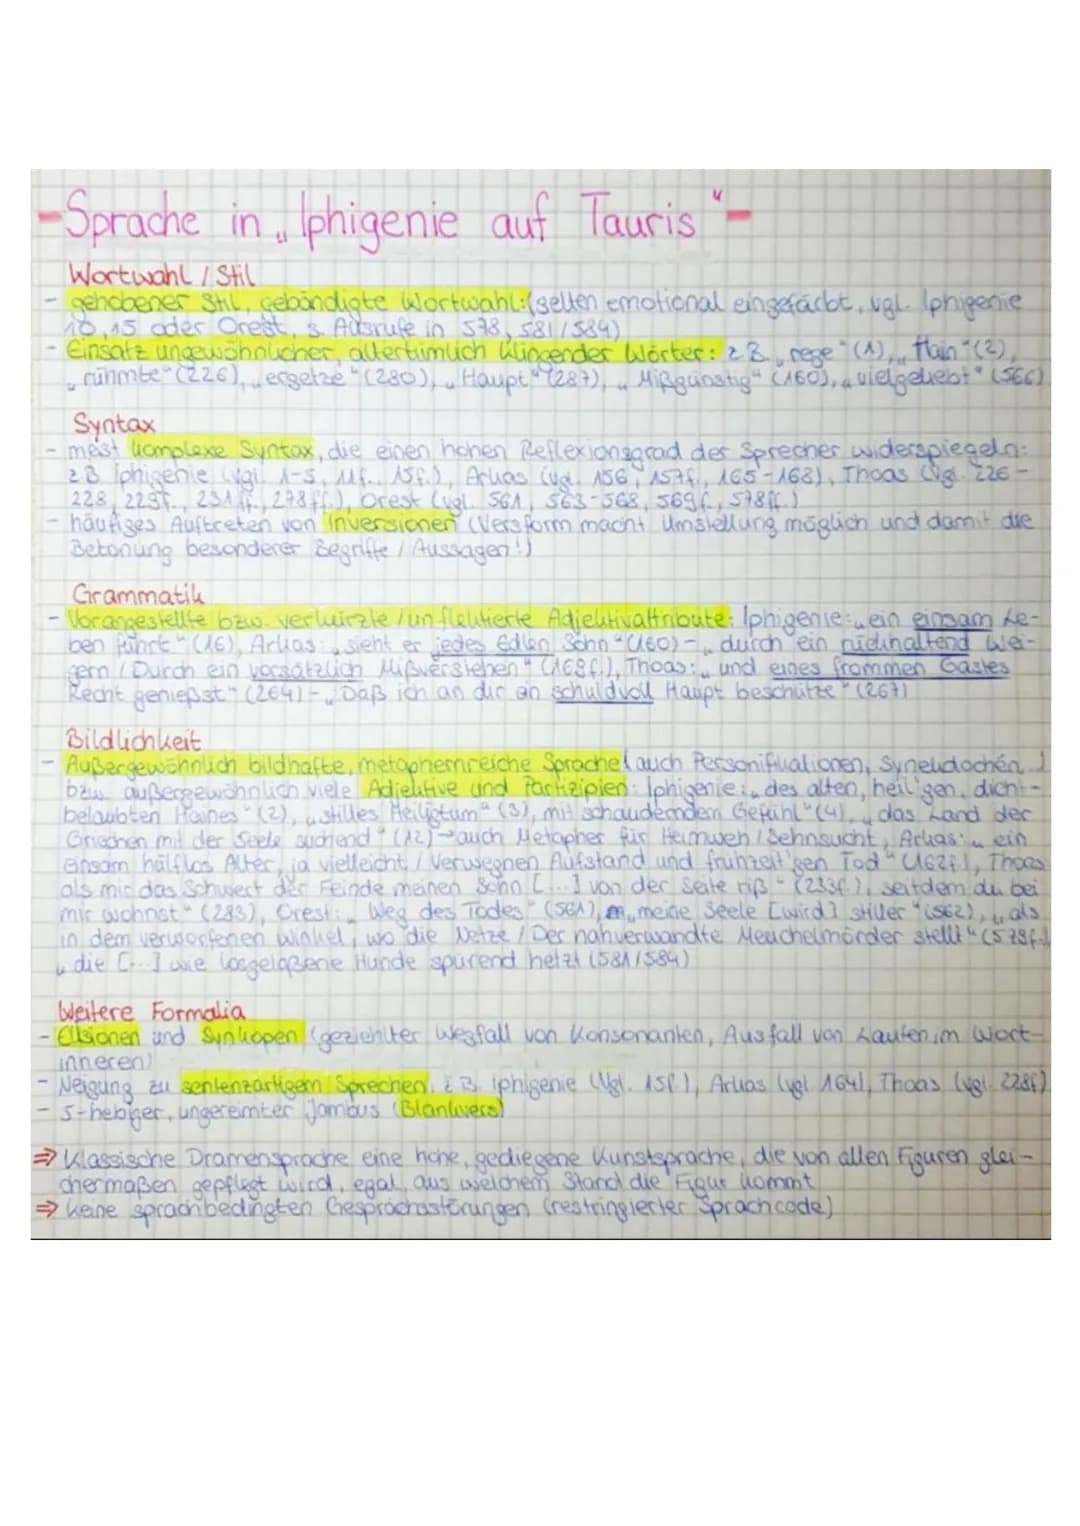 - Sprache in „Iphigenie auf Tauris" -
Wortwahl / Stil
- gehobener Stil, gebändigte Wortwahl: (selten emotional eingefärbt, vgl. Iphigenie
10, 15 oder Orest, s. Ausrufe in 578, 581/584)
- Einsatz ungewöhnlicher, altertümlich klingender Wörter: z.B. „rege" (1), „Hain" (2),
„rühmte" (226), „ergetze" (280), „Haupt" (287), „Mißgünstig" (160), „vielgeliebt" (566)
Syntax
- meist komplexe Syntax, die einen hohen Reflexionsgrad der Sprecher widerspiegeln:
z.B. Iphigenie (vgl. 1-5, 11f., 15f.), Arkas (vgl. 156, 157f., 165-168), Thoas (vgl. 226-
228, 229f., 231ff., 278ff.), Orest (vgl. 561, 563-568, 569f., 578ff.)
- häufiges Auftreten von Inversionen (Versform macht Umstellung möglich und damit die
Betonung besonderer Begriffe / Aussagen!)
Grammatik
- Vorangestellte bzw. verkürzte / unflektierte Adjektivattribute: Iphigenie: „ein einsam Le-
ben führt" (16), Arkas: „sieht er jedes Edlen Sohn" (160) - „durch ein rückhaltend Wei-
gern / Durch ein vorsätzlich Mißverstehen" (168f.), Thoas: „und eines frommen Gastes
Recht genießst" (264) - „Daß ich an dir ein schuldvoll Haupt beschütze" (267)
Bildlichkeit
- Außergewöhnlich bildhafte, metaphernreiche Sprache (auch Personifikationen, Synekdochen)
bzw. außergewöhnlich viele Adjektive und Partizipien: Iphigenie: „des alten, heil'gen, dicht-
belaubten Haines" (2), „stilles Heiligtum" (3), mit schauderndem Gefühl" (4), „das Land der
Griechen mit der Seele suchend" (12) → auch Metapher für Heimweh / Sehnsucht, Arkas: „ein
einsam hülflos Alter, ja vielleicht / Verwegnen Aufstand und frühzeit'gen Tod" (162f.), Thoas
als mir das Schwert der Feinde meinen Sohn [...] von der Seite riß" (233f.), seitdem du bei
mir wohnst" (283), Orest: „Weg des Todes" (561), „meine Seele [wird] stiller" (562), „als
in dem verworfenen Winkel, wo die Netze / Der nahverwandte Meuchelmörder stellt" (578f.)
„die [...] wie losgelaßene Hunde spürend hetzt (581/584)
Weitere Formalia
- Elisionen und Synkopen (gezielter Wegfall von Konsonanten, Ausfall von Lauten im Wort-
inneren)
- Neigung zu sentenzartigem Sprechen, z.B. Iphigenie (Vgl. 15f.), Arkas (vgl. 164), Thoas (vgl. 228f)
- 5-hebiger, ungereimter Jambus (Blankvers)
⇒ Klassische Dramensprache eine hohe, gediegene Kunstsprache, die von allen Figuren glei-
chermaßen gepflegt wird, egal, aus welchem Stand die Figur kommt
⇒ keine sprachbedingten Gesprächsstörungen (restringierter Sprachcode)